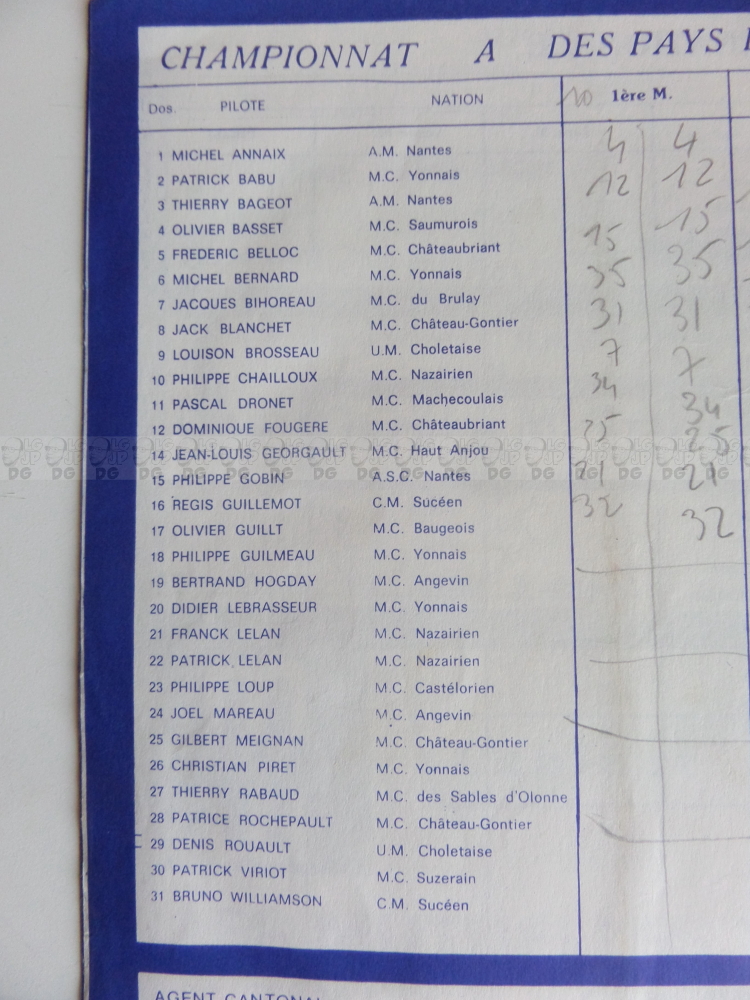 CHAMPIONNAT A DES PAYS
Dos. PILOTE NATION 10 1ère M.
1 MICHEL ANNAIX A.M. Nantes 4 4
2 PATRICK BABU M.C. Yonnais 12 12
3 THIERRY BAGEOT A.M. Nantes
4 OLIVIER BASSET M.C. Saumurois 15 15
5 FREDERIC BELLOC M.C. Châteaubriant
6 MICHEL BERNARD M.C. Yonnais 35 35
7 JACQUES BIHOREAU M.C. du Brulay 31 31
8 JACK BLANCHET M.C. Château-Gontier
9 LOUISON BROSSEAU U.M. Choletaise 7 7
10 PHILIPPE CHAILLOUX M.C. Nazairien 34
11 PASCAL DRONET M.C. Machecoulais 34
12 DOMINIQUE FOUGERE M.C. Châteaubriant 25 25
14 JEAN-LOUIS GEORGAULT M.C. Haut Anjou
15 PHILIPPE GOBIN A.S.C. Nantes 21 21
16 REGIS GUILLEMOT C.M. Sucéen 32 32
17 OLIVIER GUILLT M.C. Baugeois
18 PHILIPPE GUILMEAU M.C. Yonnais
19 BERTRAND HOGDAY M.C. Angevin
20 DIDIER LEBRASSEUR M.C. Yonnais
21 FRANCK LELAN M.C. Nazairien
22 PATRICK LELAN M.C. Nazairien
23 PHILIPPE LOUP M.C. Castélorien
24 JOEL MAREAU M.C. Angevin
25 GILBERT MEIGNAN M.C. Château-Gontier
26 CHRISTIAN PIRET M.C. Yonnais
27 THIERRY RABAUD M.C. des Sables d'Olonne
28 PATRICE ROCHEPAULT M.C. Château-Gontier
29 DENIS ROUAULT U.M. Choletaise
30 PATRICK VIRIOT M.C. Suzerain
31 BRUNO WILLIAMSON C.M. Sucéen
AGENT CANTONAL